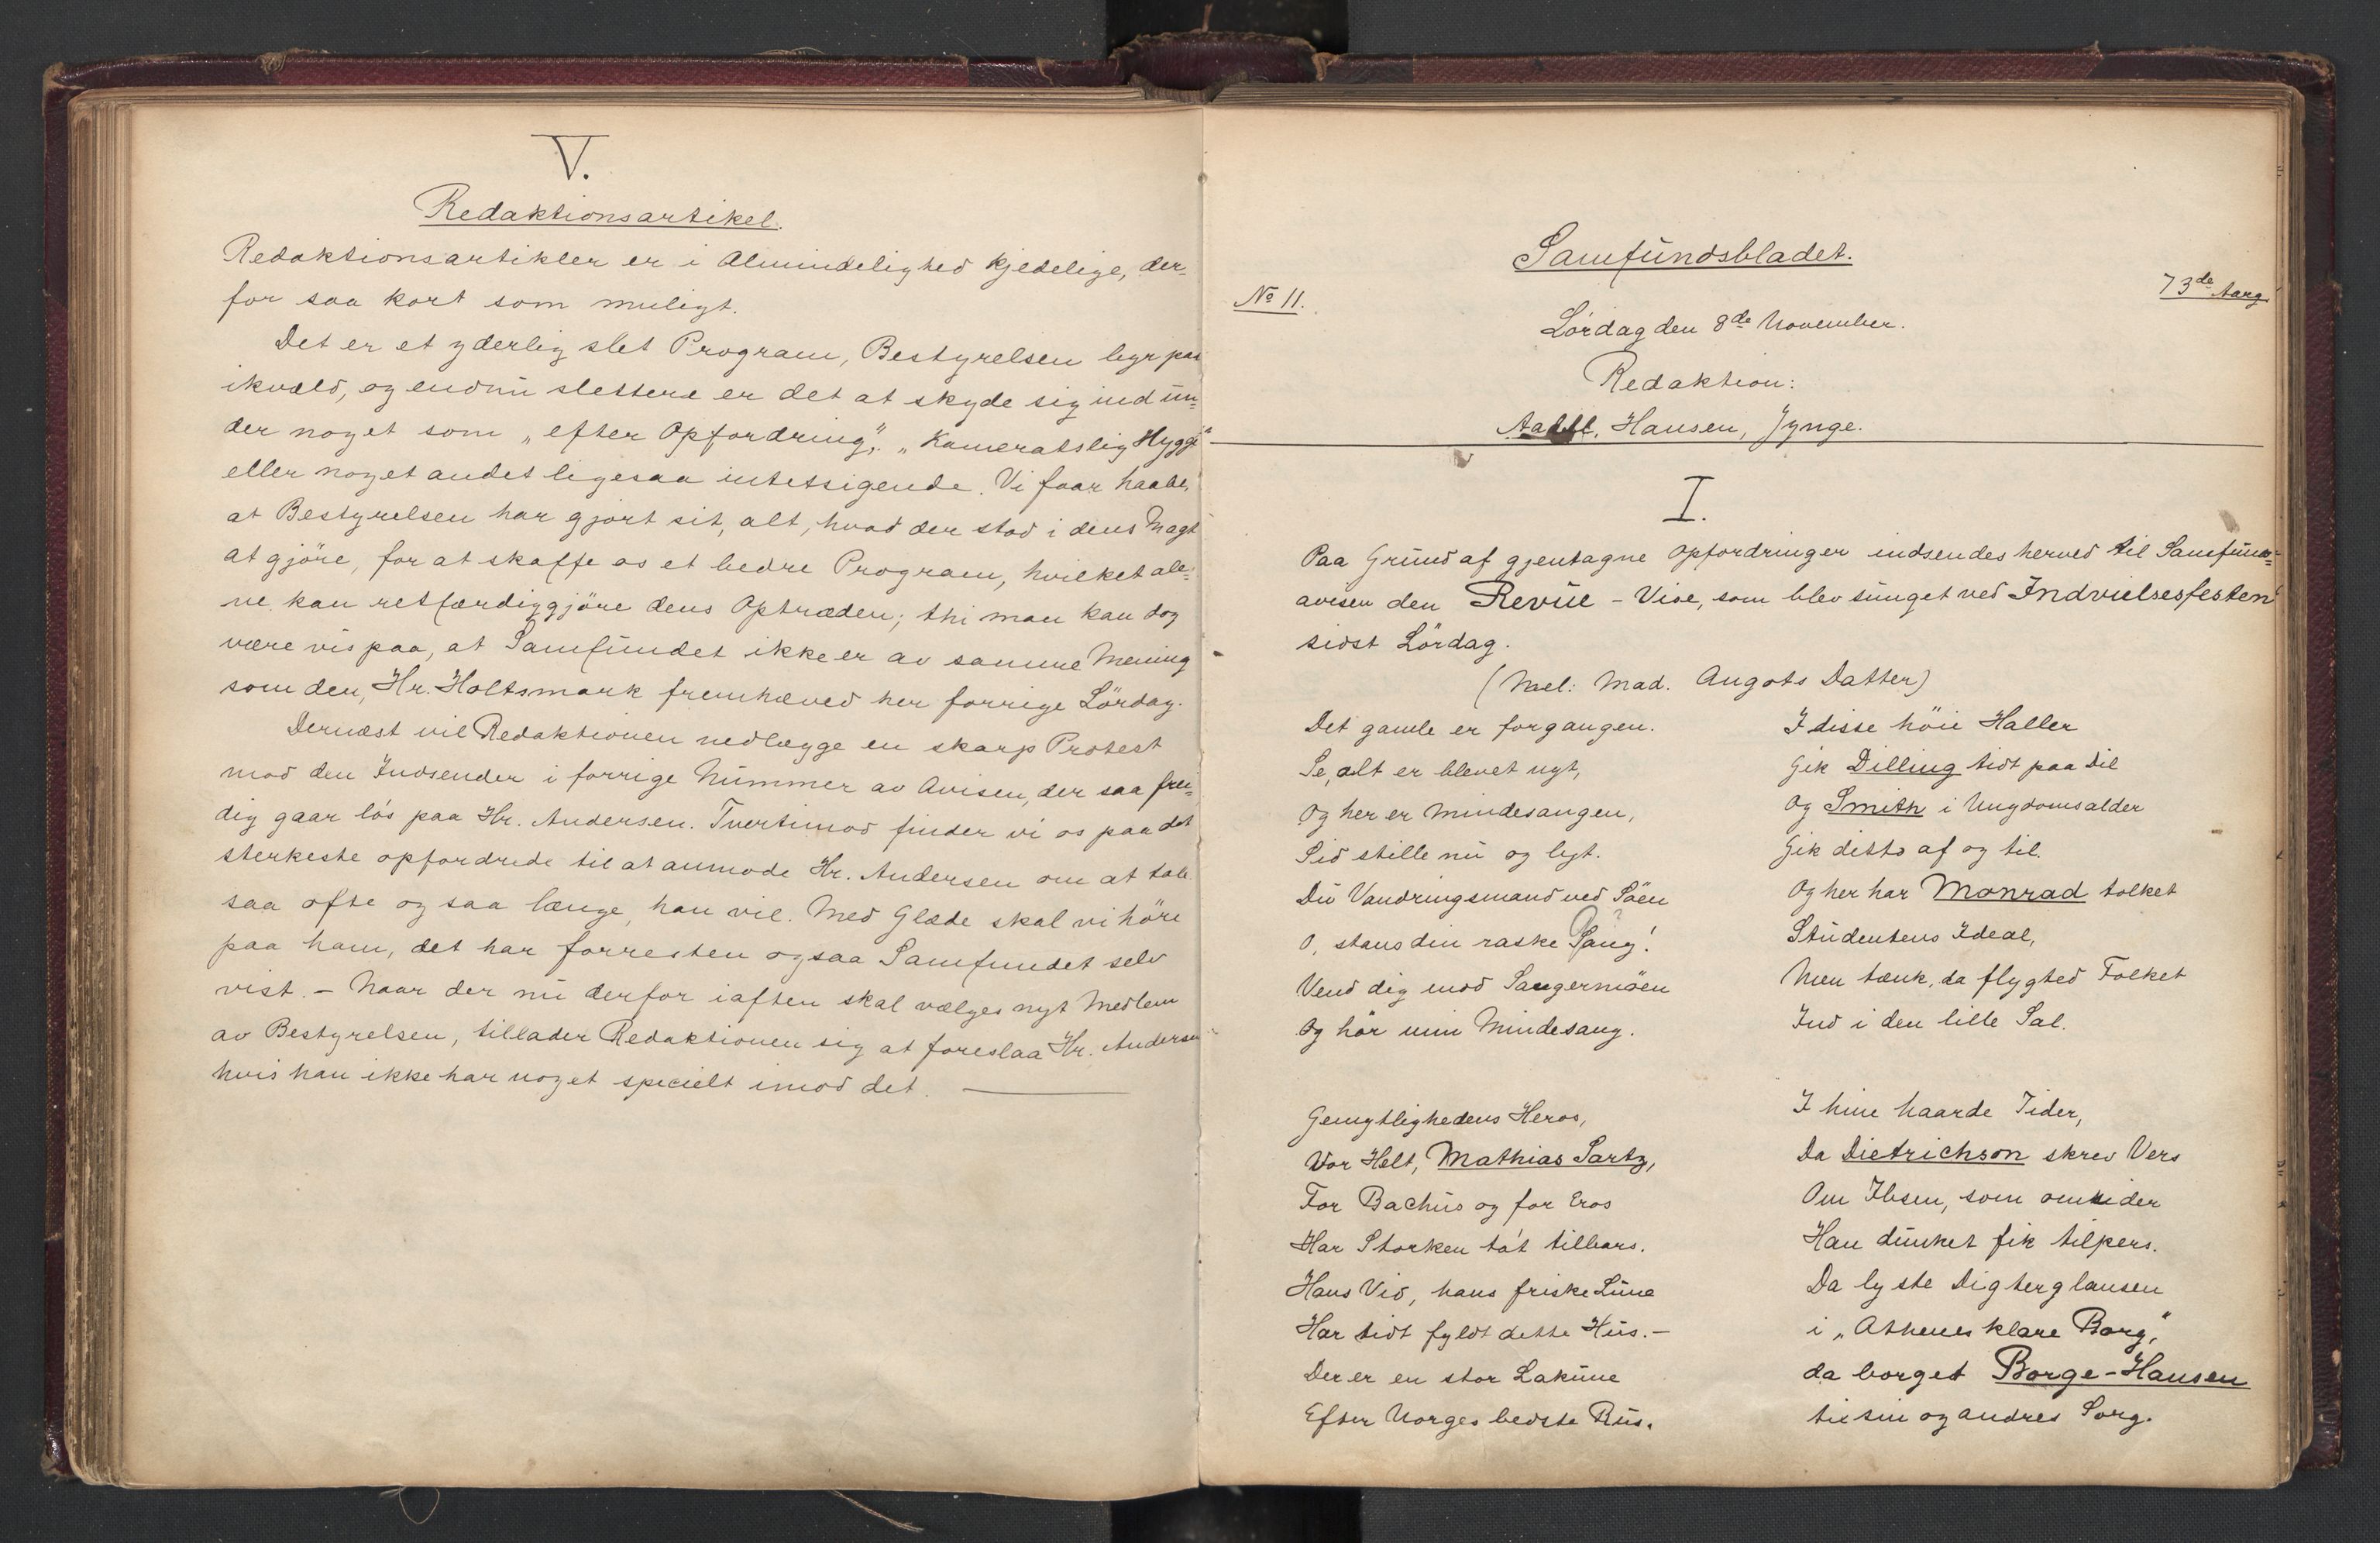 V.
Redaktionsartikel.
Redaktionsartikler er i Almindelighed kjedelige, der-
for saa kort som muligt.
Det er et yderlig slet Program, Bestyrelsen byr paa
ikvæld, og endnu slettere er det at skyde sig ind un-
der noget som „efter Opfordring", „Kameratslig Hygge"
eller noget andet ligesaa intetsigende. Vi faar haabe,
at Bestyrelsen har gjort sit, alt, hvad der stod i dens Magt
at gjöre, for at skaffe os et bedre Program, hvilket ale-
ne kan retfærdiggjöre dens Optræden; thi man kan dog
være vis paa, at Samfundet ikke er av samme Mening
som den, Hr. Holtsmark fremhæved her forrige Lördag.
Dernæst vil Redaktionen nedlægge en skarp Protest
mod den Indsender i forrige Nummer av Avisen, der saa frei-
dig gaar lös paa Hr. Andersen. Tvertimod finder vi os paa det
sterkeste opfordrede til at anmode Hr. Andersen om at tale
saa ofte og saa længe, han vil. Med Glæde skal vi höre
paa ham, det har forresten ogsaa Samfundet selv
vist. – Naar der nu derfor iaften skal vælges nyt Medlem
av Bestyrelsen, tillader Redaktionen sig at foreslaa Hr. Andersen
hvis han ikke har noget specielt imod det.
Samfundsbladet.
No 11.
73de Aarg.
Lördag den 8de November.
Redaktion:
Aall, Hansen, Jynge.
I.
Paa Grund af gjentagne Opfordringer indsendes herved til Samfunds-
avisen den Revue - Vise, som blev sunget ved Indvielsesfesten
sidst Lördag.
(Mel: Mad. Angots Datter)
Det gamle er forgangen.
Se, alt er blevet nyt,
Og her er Mindesangen,
Sid stille nu og lyt.
Du Vandringsmand ved Söen
O, stans din raske Gang!
Vend dig mod Sangermöen
Og hör min Mindesang.
Gemytlighedens Heros,
Vor Helt, Mathias Sartz,
For Bachus og for Eros
Har Storken ta't tilbars.
Hans Vid, hans friske Lune
Har tidt fyldt dette Hus. –
Der er en stor Lakune
Efter Norges bedste Rus.
I disse höie Haller
Gik Dilling tidt paa Dil
Og Smith i Ungdomsalder
Gik ditto af og til.
Og her har Monrad tolket
Studentens Ideal,
Men tænk, da flygted Folket
Ind i den lille Sal.
I hine haarde Tider,
Da Dietrichson skrev Vers
Om Ibsen, som omsider
Han dunket fik tilpers.
Da lyste Digterglansen
i „Athenes klare Borg,"
da borget Borge-Hansen
til sin og andres Sorg.